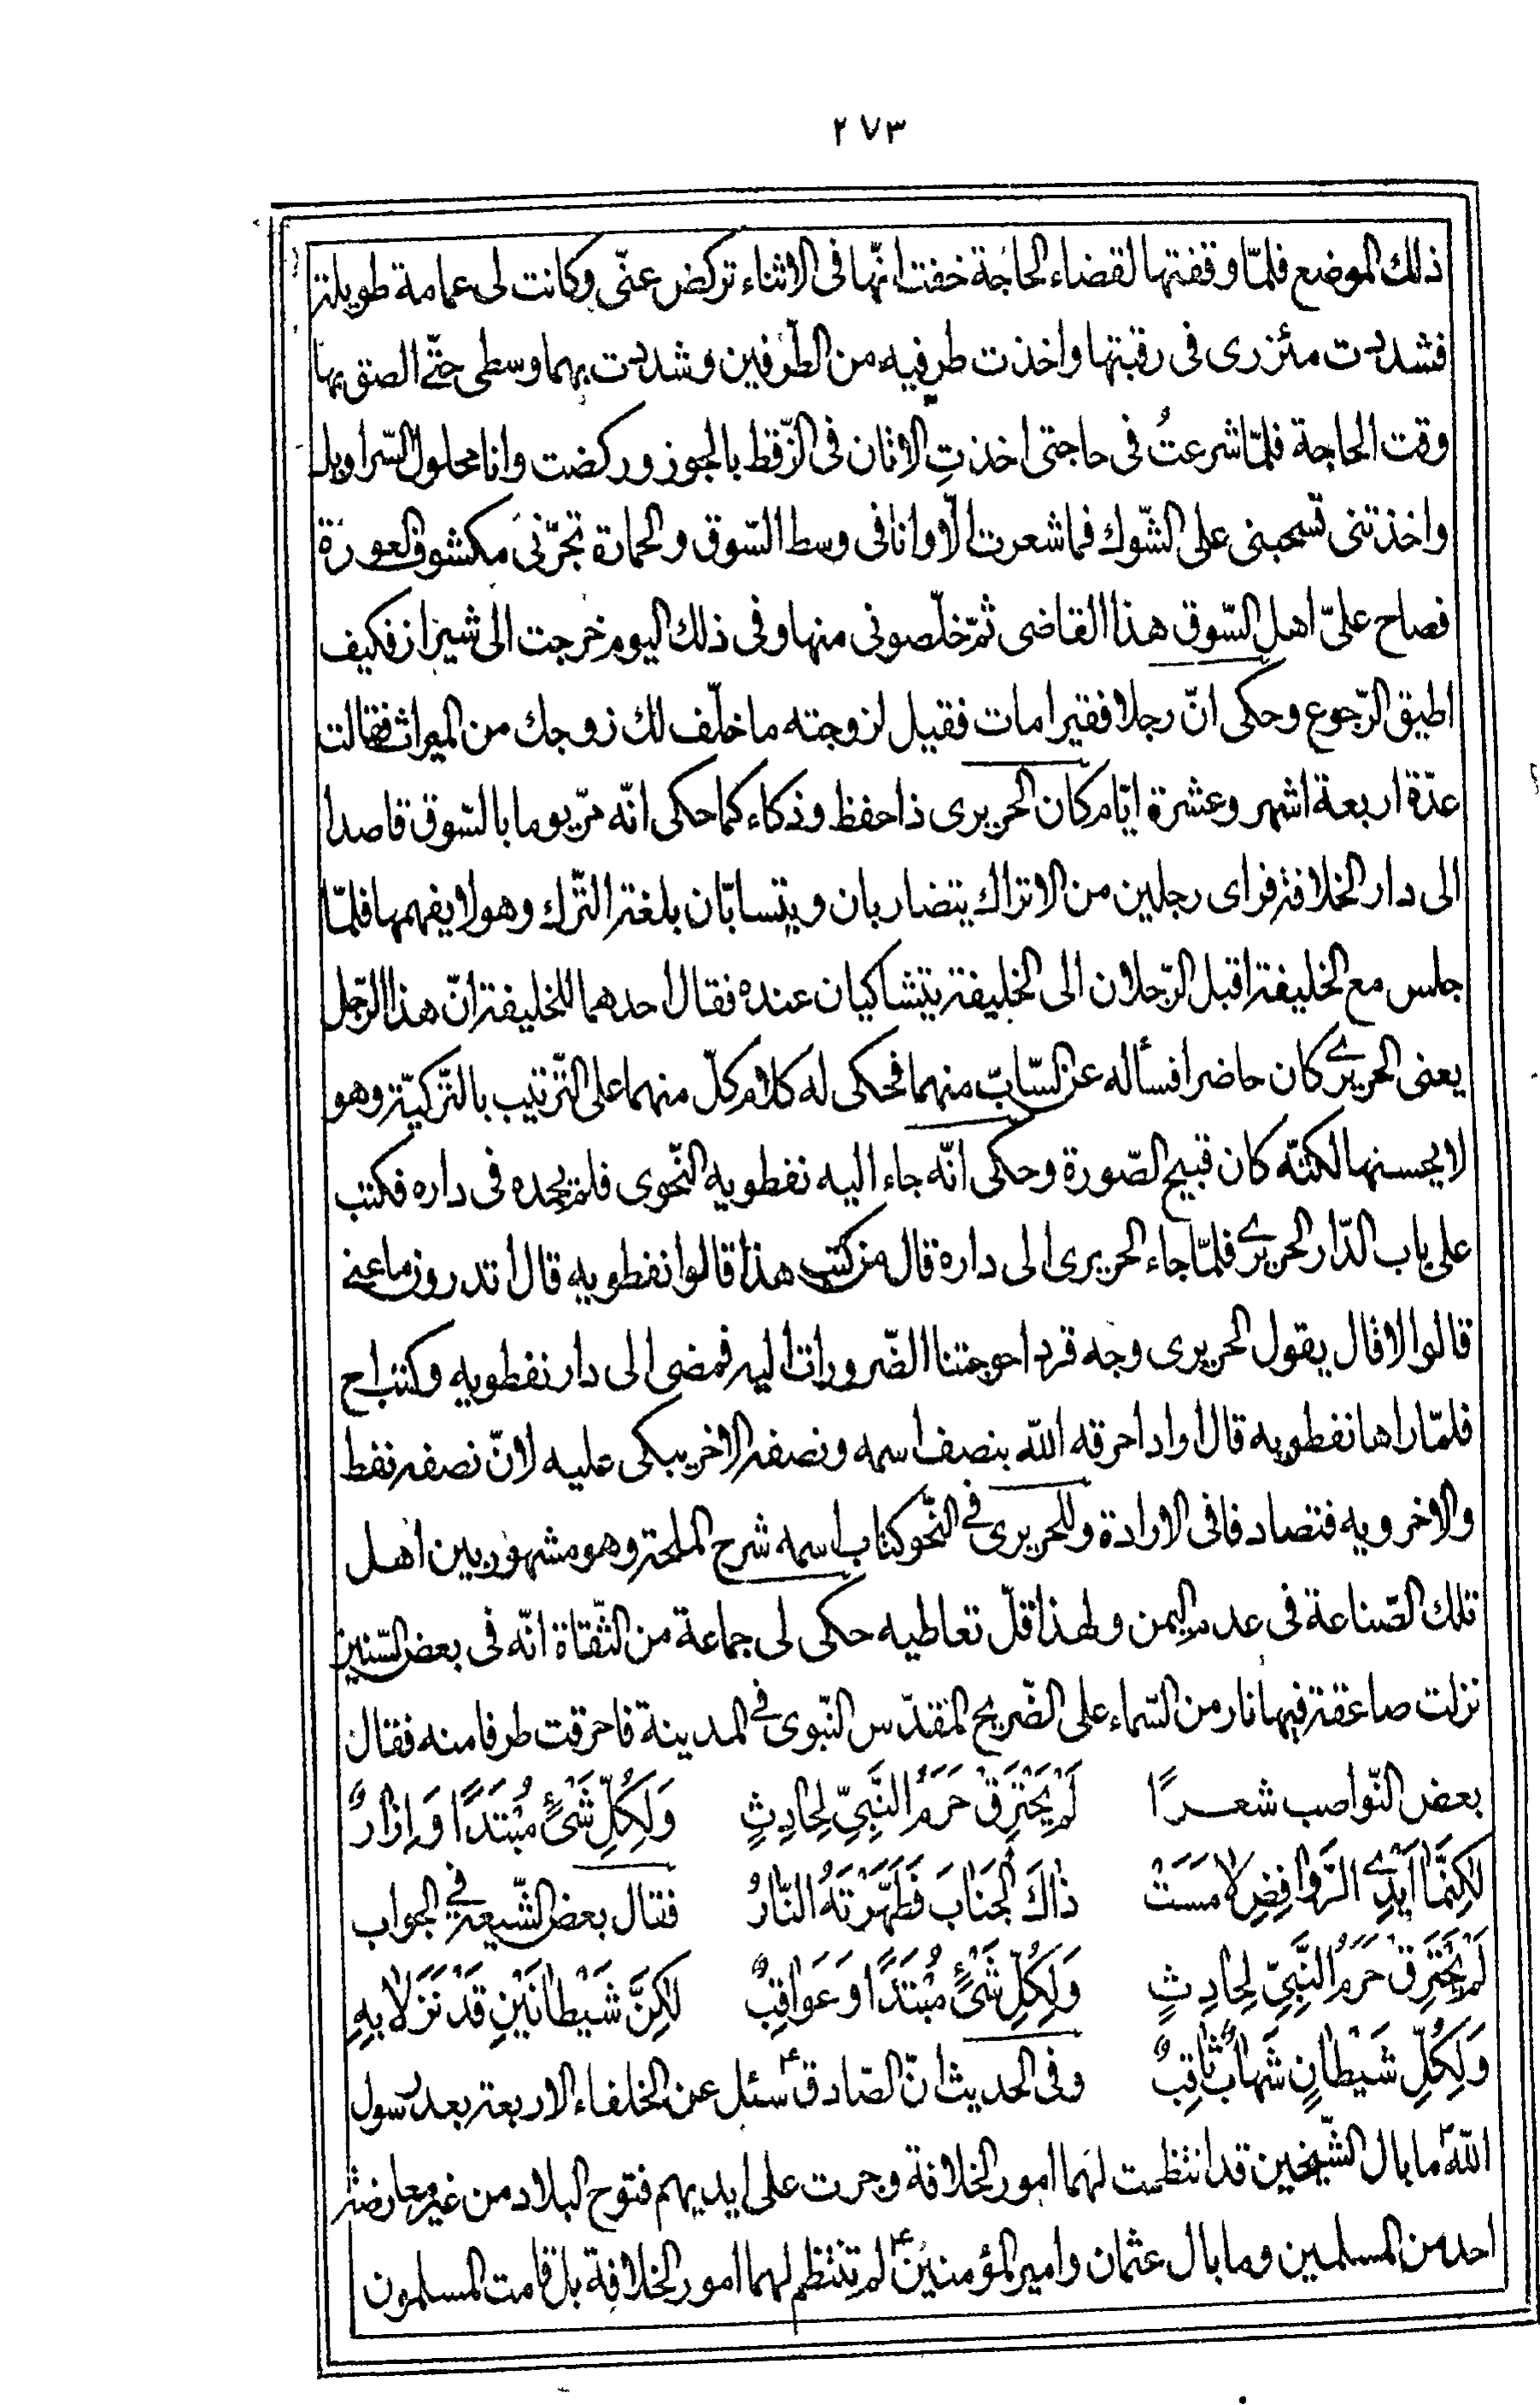 ٢٧٣
ذلك الموضع فلمّا وقفتها لقضاء الحاجة خفت انّها فى الاثناء تركض عنّى وكانت لى عمامة طويلة
فشددت مئزرى فى رقبتها واخذت طرفيه من الطّرفين وشددت بهما وسطى حتّى الصق بها
وقت الحاجة فلمّا شرعتُ فى حاجتى اخذتِ الاتان فى الزّقط بالجوز وركضت وانا محلول السّراويل
واخذتنى تسحبنى على الشّوك فما شعرت الّا وانا فى وسط السّوق والحمارة تجرّنى مكشوف العورة
فصاح علىّ اهل السّوق هذا القاضى ثمّ خلّصونى منها وفى ذلك اليوم خرجت الى شيراز فكيف
اطيق الرّجوع وحكى انّ رجلا فقيرا مات فقيل لزوجته ما خلّف لك زوجك من الميراث فقالت
عدّة اربعة اشهر وعشرة ايّام كان الحريرى ذا حفظ وذكاء كما حكى انّه مرّ يوما بالسّوق قاصدا
الى دار الخلافة فراى رجلين من الاتراك يتضاربان ويتسابّان بلغة التّرك وهو لا يفهمها فلمّا
جلس مع الخليفة اقبل الرّجلان الى الخليفة يتشاكيان عنده فقال احدهما للخليفة انّ هذا الرّجل
يعنى الحريرى كان حاضرا فسأله عن السّابّ منهما فحكى له كلام كلّ منهما على التّرتيب بالتّركيّة وهو
لا يحسنها لكنّه كان قبيح الصّورة وحكى انّه جاء اليه نفطويه النّحوى فلم يجده فى داره فكتب
على باب الدّار الحريرى فلمّا جاء الحريرى الى داره قال من كتب هذا قالوا نفطويه قال اتدرون ما عنى
قالوا لا قال يقول الحريرى وجه قرد احوجتنا الضّرورات اليه فمضى الى دار نفطويه وكتب اح
فلمّا راها نفطويه قال اراد احرقه الله بنصف اسمه ونصفه الاخر يبكى عليه لانّ نصفه نفط
والاخر ويه فتصادفا فى الارادة وللحريرى فى النّحو كتاب اسمه شرح الملحة وهو مشهور بين اهل
تلك الصّناعة فى عدم اليمن ولهذا قلّ تعاطيه حكى لى جماعة من الثّقاة انّه فى بعض السّنين
نزلت صاعقة فيها نار من السّماء على الضّريح المقدّس النّبوى فى المدينة فاحرقت طرفا منه فقال
بعض النّواصب شعرًا لَمْ يَحْتَرِقْ حَرَمُ النَّبِىِّ لِحادِثٍ وَلِكُلِّ شَىْءٍ مُبْتَدًا وَاِزارٌ
لكِنَّما اَيْدِى الرَّوافِضِ لامَسَتْ ذاكَ الْجَنابَ فَطَهَّرَتْهُ النّارُ فقال بعض الشّيعة فى الجواب
لَمْ يَحْتَرِقْ حَرَمُ النَّبِىِّ لِحادِثٍ وَلِكُلِّ شَىْءٍ مُبْتَدًا وَعَواقِبٌ لكِنَّ شَيْطانَيْنِ قَدْ نَزَلا بِهِ
وَلِكُلِّ شَيْطانٍ شَهابٌ ثاقِبٌ وفى الحديث انّ الصّادق ع سئل عن الخلفاء الاربعة بعد رسول
اللّه ص ما بال الشّيخين قد انتظمت لهما امور الخلافة وجرت على ايديهم فتوح البلاد من غير معارضة
احد من المسلمين وما بال عثمان وامير المؤمنين ع لم تنتظم لهما امور الخلافة بل قامت المسلمون